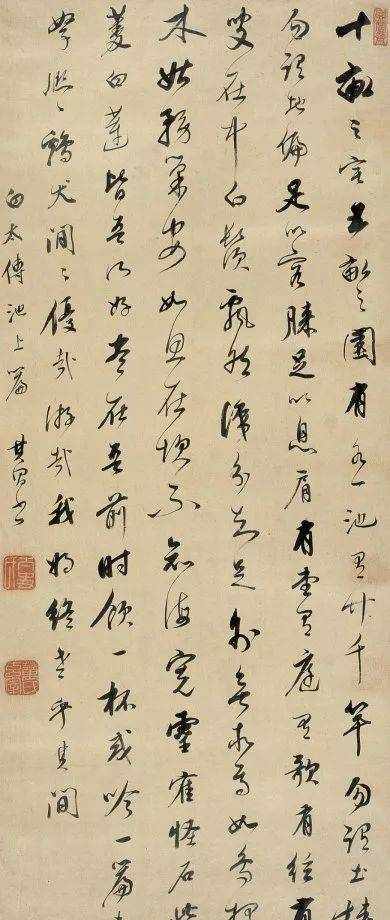 十畝之宅五畝之園有水一池有竹千竿勿謂土狹
勿謂地偏足以容膝足以息肩有堂有庭有歌有絃有
叟在中白鬚飄然識分知足外無求焉如鳥擇
木姑務巢安如龜在坎不知海寬靈寉怪石紫
菱白蓮皆吾所好盡在吾前時飲一杯或吟一篇妻
孥熙々鷄犬閒々優哉游哉我將終老乎其間
白太傅池上篇 其昌書